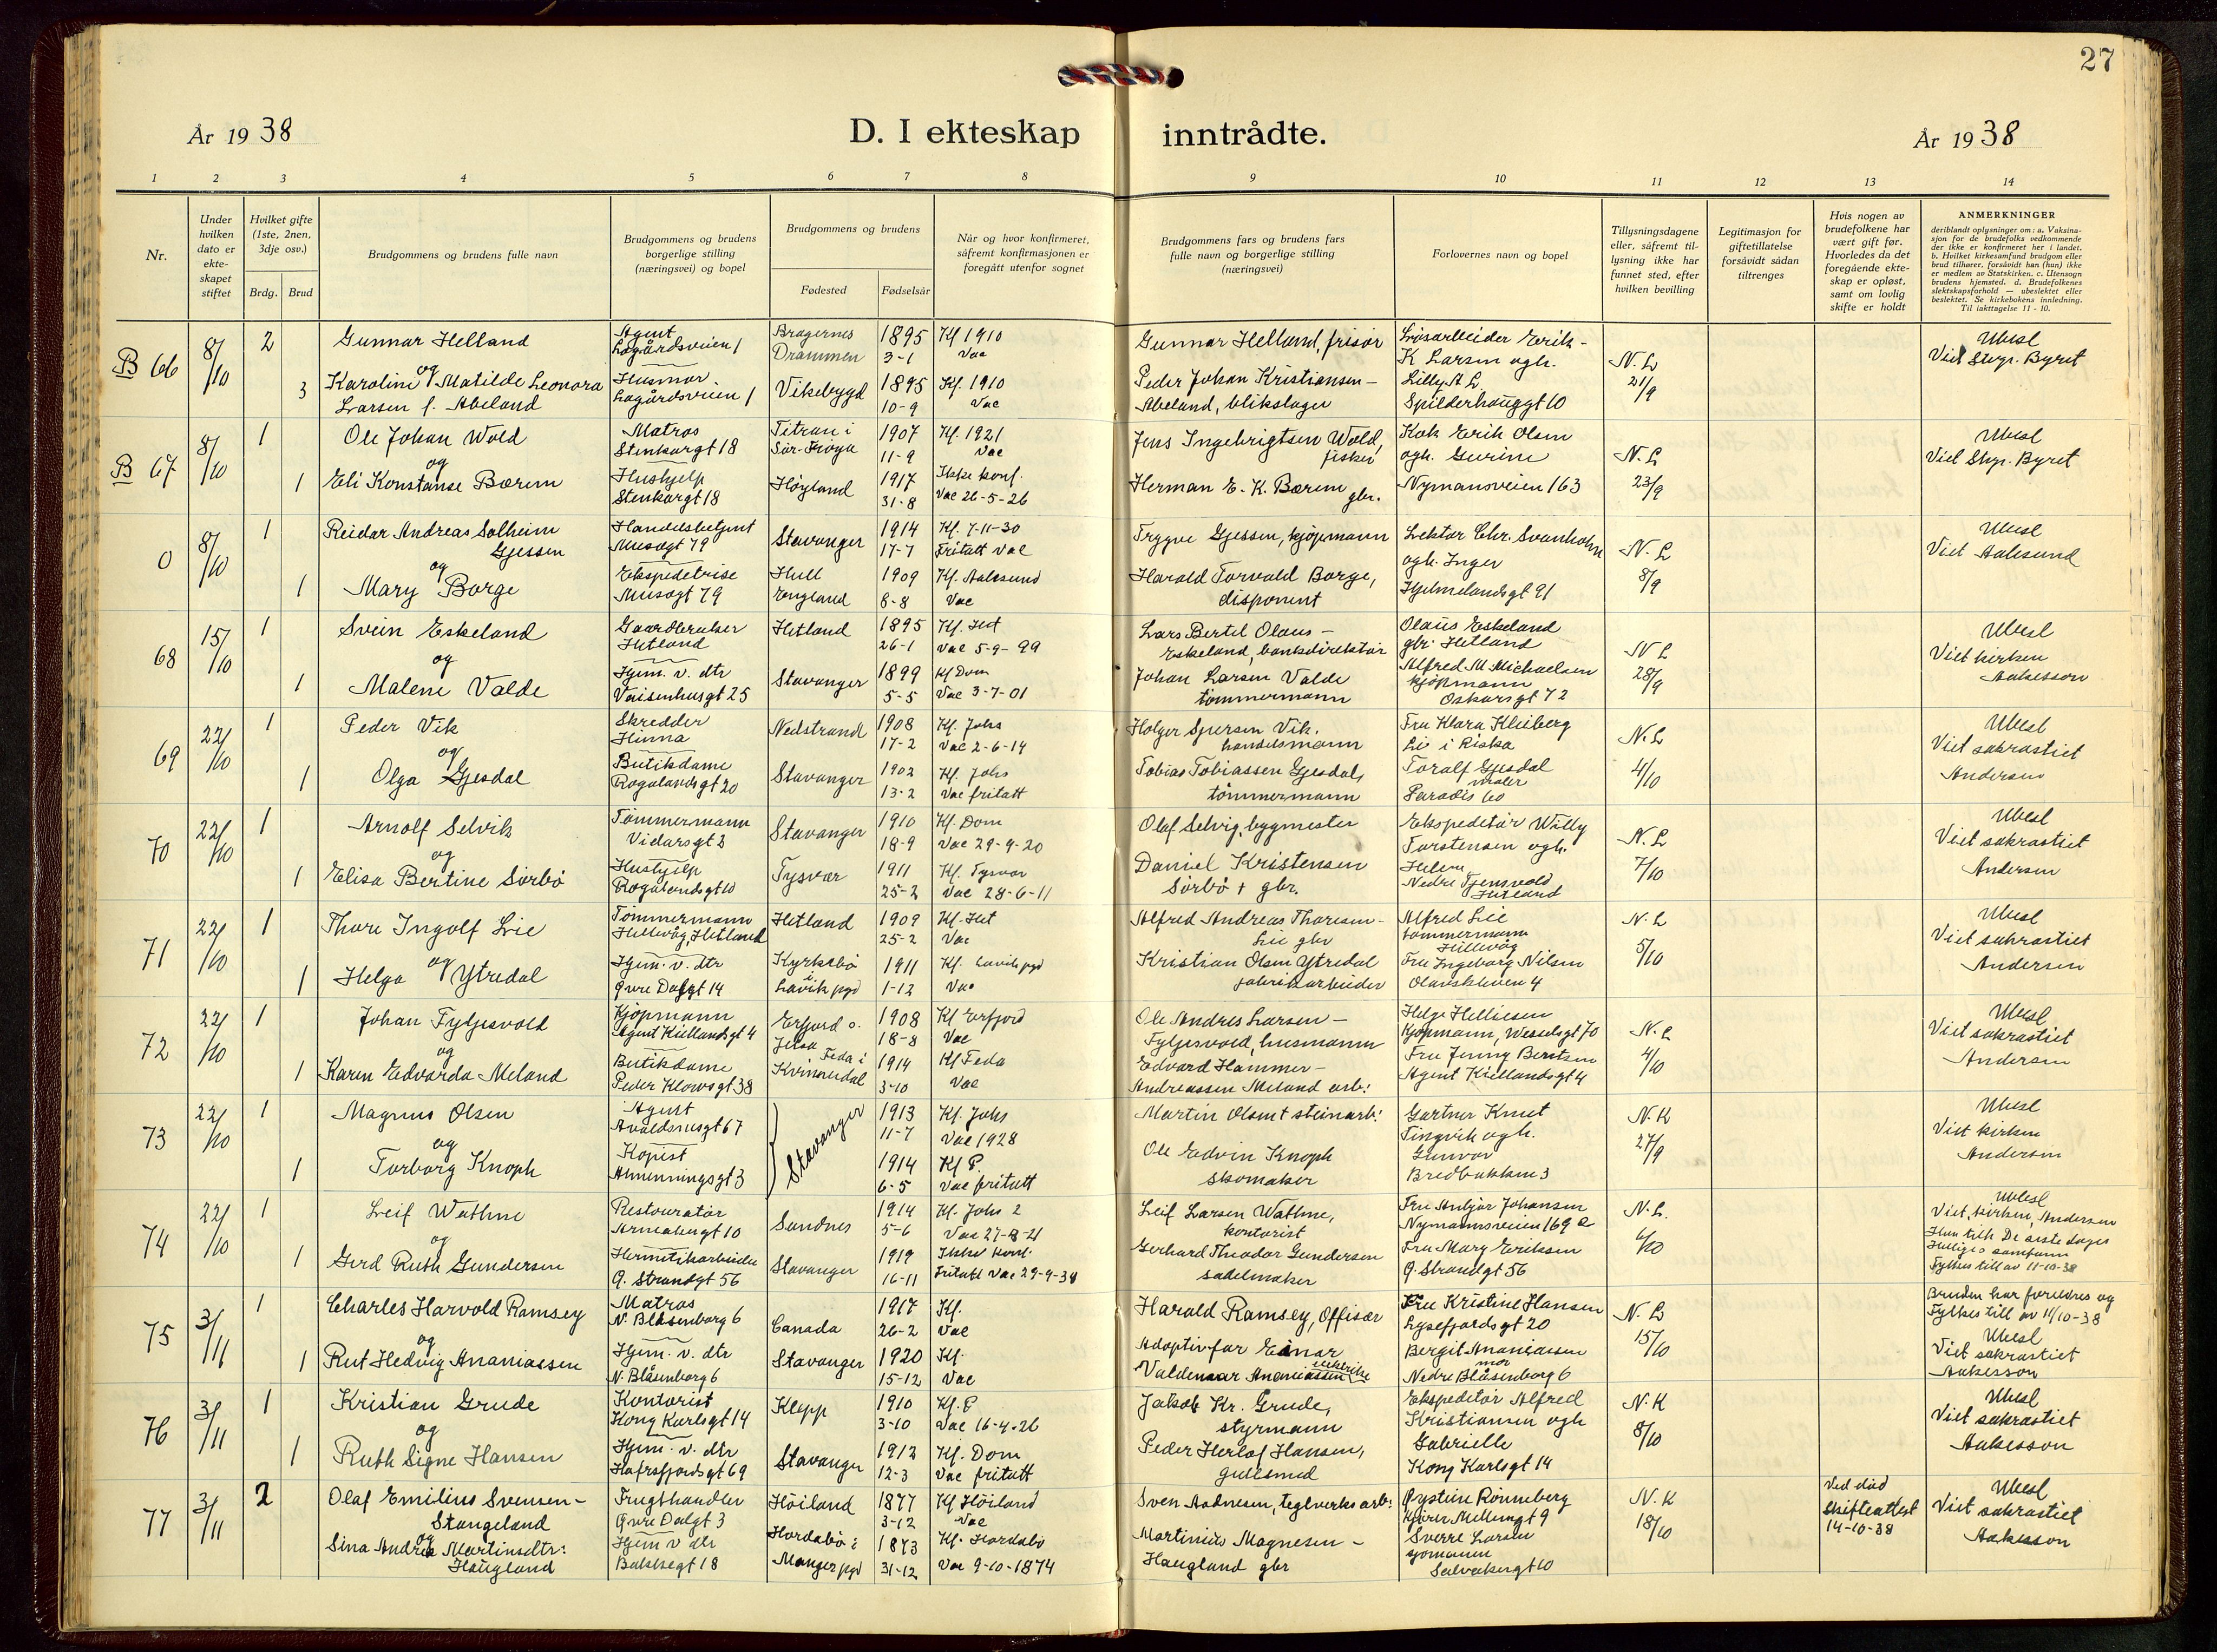 27
År 1938
D. I ekteskap inntrådte.
År 1938
1 2 3 4 5 6 7 8 9 10 11 12 13 14
Nr.
Under hvilken dato er ekte- skapet stiftet
Hvilket gifte (1ste, 2nen, 3dje osv.)
Brdg. Brud
Brudgommens og brudens fulle navn
Brudgommens og brudens borgerlige stilling (næringsvei) og bopel
Brudgommens og brudens
Fødested Fødselsår
Når og hvor konfirmeret, såfremt konfirmasjonen er foregått utenfor sognet
Brudgommens fars og brudens fars fulle navn og borgerlige stilling (næringsvei)
Forlovernes navn og bopel
Tillysningsdagene eller, såfremt til- lysning ikke har funnet sted, efter hvilken bevilling
Legitimasjon for giftetillatelse forsåvidt sådan tiltrenges
Hvis nogen av brudefolkene har vært gift før. Hvorledes da det foregående ekte- skap er opløst, samt om lovlig skifte er holdt
ANMERKNINGER
deriblandt oplysninger om: a. Vaksina- sjon for de brudefolks vedkommende der ikke er konfirmeret her i landet. b. Hvilket kirkesamfund brudgom eller brud tilhører, forsåvidt han (hun) ikke er medlem av Statskirken. c. Utensogn brudens hjemsted. d. Brudefolkenes slektskapsforhold — ubeslektet eller beslektet. Se kirkebokens innledning. Til iakttagelse 11 - 10.
B 66 8/10 2 Gunnar Helland Agent Lagårdsveien 1 Bragernes Drammen 1895 3-1 Kf 1910 Vac Gunnar Helland, frisør Løsarbeider Erik K Larsen ogh. N. L 21/9 Ubesl Viet Stvgr. Byret
og
3 Karoline Matilde Leonora Larsen f. Abeland Husmor. Lagårdsveien 1 Vikebygd 1895 10-9 Kf. 1910 Vac Peder Johan Kristiansen - Abeland, blikslager Lilly A L. Spilderhauggt 10
B 67 8/10 1 Ole Johan Wold Matros Stenkargt 18 Titran i Sør-Frøya 1907 11-9 Kf. 1921 Vac Jens Ingebrigtsen Wold, fisker Kok Erik Olsen ogh. Gurine N. L 23/9 Ubesl Viet Stvgr. Byret
og
1 Eli Konstanse Bærem Hushjelp Stenkargt 18 Høyland 1917 31-8 Ikke konf. Vac 26-5-26 Herman E. K. Bærem gbr. Nymansveien 163
0 8/10 1 Reidar Andreas Solheim Gjessen Handelsbetjent Musegt 79 Stavanger 1914 17-7 Kf. 7-11-30 Fritatt vac Trygve Gjessen, kjøpmann Lektor Chr. Svanholm ogh. Inger N. L 8/9 Ubesl Viet Aalesund
og
1 Mary Borge Ekspedetrise Musegt 79 Hull England 1909 8-8 Kf. Aalesund Vac Harald Torvald Borge, disponent Hjelmelandsgt 91
68 15/10 1 Svein Eskeland Gaardbruker Hetland Hetland 1895 26-1 Kf. Het Vac 5-9-99 Lars Bertil Olaus - Eskeland, bankdirektør Olaus Eskeland gbr. Hetland N L 28/9 Ubesl Viet kirken Aakesson
og
1 Malene Valde Hjem. v. dtr Vaisenhusgt 25 Stavanger 1899 5-5 Kf Dom Vac 3-7-01 Johan Larsen Valde tømmermann Alfred M Michaelsen kjøpmann Oskarsgt 72
69 22/10 1 Peder Vik Skredder Hinna Nedstrand 1908 17-2 Kf. Johs Vac 2-6-14 Holger Sjursen Vik. handelsmann Fru Klara Kleiberg Lie i Riska N. L 4/10 Ubesl Viet sakrastiet Andersen
og
1 Olga Gjesdal Butikdame Rogalandsgt 20 Stavanger 1902 13-2 Kf. Johs Vac fritatt Tobias Tobiassen Gjesdal, tømmermann Toralf Gjesdal maler Paradis 60
70 22/10 1 Arnolf Selvik Tømmermann Vidarsgt 3 Stavanger 1910 18-9 Kf. Dom Vac 29-9-20 Olaf Selvig, bygmester Ekspeditør Willy Torstensen ogh. N. L 7/10 Ubesl Viet sakrastiet Andersen
og
1 Elisa Bertine Sørbø Hushjelp Rogalandsgt 10 Tysvær 1911 25-2 Kf. Tysvær Vac 28-6-11 Daniel Kristensen Sørbø + gbr. Helene Nedre Tjensvold Hetland
71 22/10 1 Thore Ingolf Lie Tømmermann Hillevåg, Hetland Hetland 1909 25-2 Kf. Het Vac Alfred Andreas Thoresen - Lie gbr Alfred Lie tømmermann Hillevåg N. L 5/10 Ubesl Viet sakrastiet Andersen
og
1 Helga Ytredal Hjem. v. dtr Øvre Dalgt 14 Kyrkebø i Lavik pgd 1911 1-12 Kf. Lavik pgd Vac Kristian Olsen Ytredal fabrikarbeider Fru Ingeborg Nilsen Olavskleven 4
72 22/10 1 Johan Fylgesvold Kjøpmann Agent Kiellandsgt 4 Erfjord o. Jelsa 1908 18-8 Kf Erfjord Vac Ole Andres Larsen - Fylgesvold, husmann Helge Helliesen Kjøpmann, Weselsgt 70 N. L 4/10 Ubesl Viet sakrastiet Andersen
og
1 Karen Edvarda Meland Butikdame Peder Klowsgt 38 Feda i Kvinesdal 1914 3-10 Kf Feda Vac Edvard Hammer - Andreassen Meland arb. Fru Jenny Berntsen Agent Kiellandsgt 4
73 22/10 1 Magnus Olsen Agent Avaldsnesgt 67 Stavanger 1913 11-7 Kf. Johs Vac 1928 Martin Olsen + steinarb. Gartner Knut Tingvik ogh. N. K 27/9 Ubesl Viet kirken Andersen
og
1 Torborg Knoph Kopist Almenningsgt 3 1914 6-5 Kf P. Vac fritatt Ole Edvin Knoph skomaker Gunvor Bredbakken 3
74 22/10 1 Leif Wathne Restauratør Arneahengt 10 Sandnes 1914 5-6 Kf. Johs 2 Vac 27-8-21 Leif Larsen Wathne, kontorist Fru Anbjør Johansen Nymannsveien 169 a N. L. 6/10 Ubesl Viet, kirken, Andersen
og
1 Gerd Ruth Gundersen Hermetikarbeider Ø. Strandgt 56 Stavanger 1919 16-11 Ikke konf. Fritatt Vac 29-9-38 Gerhard Theodor Gundersen sadelmaker Fru Mary Eriksen Ø. Strandgt 56 Hun tilh De siste dages Helliges samfunn Fylkes till av 11-10-38
75 3/11 1 Charles Harvold Ramsey Matros N. Blåsenborg 6 Canada 1917 26-2 Kf. Vac Harald Ramsey, Offiser Fru Kristine Hansen Lysefjordsgt 20 N. L 15/10 Bruden har foreldres og Fylkes till av 11/10-38 Ubesl Viet sakrastiet Aakesson
og
1 Rut Hedvig Ananiassen Hjem. v. dtr N. Blåsenborg 6 Stavanger 1920 15-12 Kf. Vac Adoptivfar Einar Valdemar Ananiassen Bergit Ananiassen mor Nedre Blåsenborg 6
76 3/11 1 Kristian Grude Kontorist Kong Karlsgt 14 Klepp 1910 3-10 Kf. P Vac 16-4-26 Jakob Kr. Grude, styrmann Ekspeditør Alfred Kristiansen ogh N. K 8/10 Ubesl Viet sakrastiet Aakesson
og
1 Ruth Signe Hansen Hjem. v. dtr Hafrsfjordsgt 69 Stavanger 1912 12-3 Kf. Dom Vac fritatt Peder Herlof Hansen, gullsmed Gabrielle Kong Karlsgt 14
77 3/11 2 Olaf Emilius Svensen - Stangeland Frugthandler Øvre Dalgt 3 Høiland 1877 3-12 Kf Høiland Vac Sven Aadnesen, teglverksarb. Øystein Rønneberg Kjører Mellemgt 9 N. K 18/10 Ved død Skifteattest 14-10-38 Ubesl Viet sakrastiet Aakesson
og
Sina Andrea Martinsdtr: Haugland Hjem v dtr Bakkegt 18 Hordabø i Manger pgd 1873 31-12 Kf. Hordabø Vac 9-10-1874 Martinius Magnesen - Haugland gbr Sverre Larsen sjømann Solvebergt 10